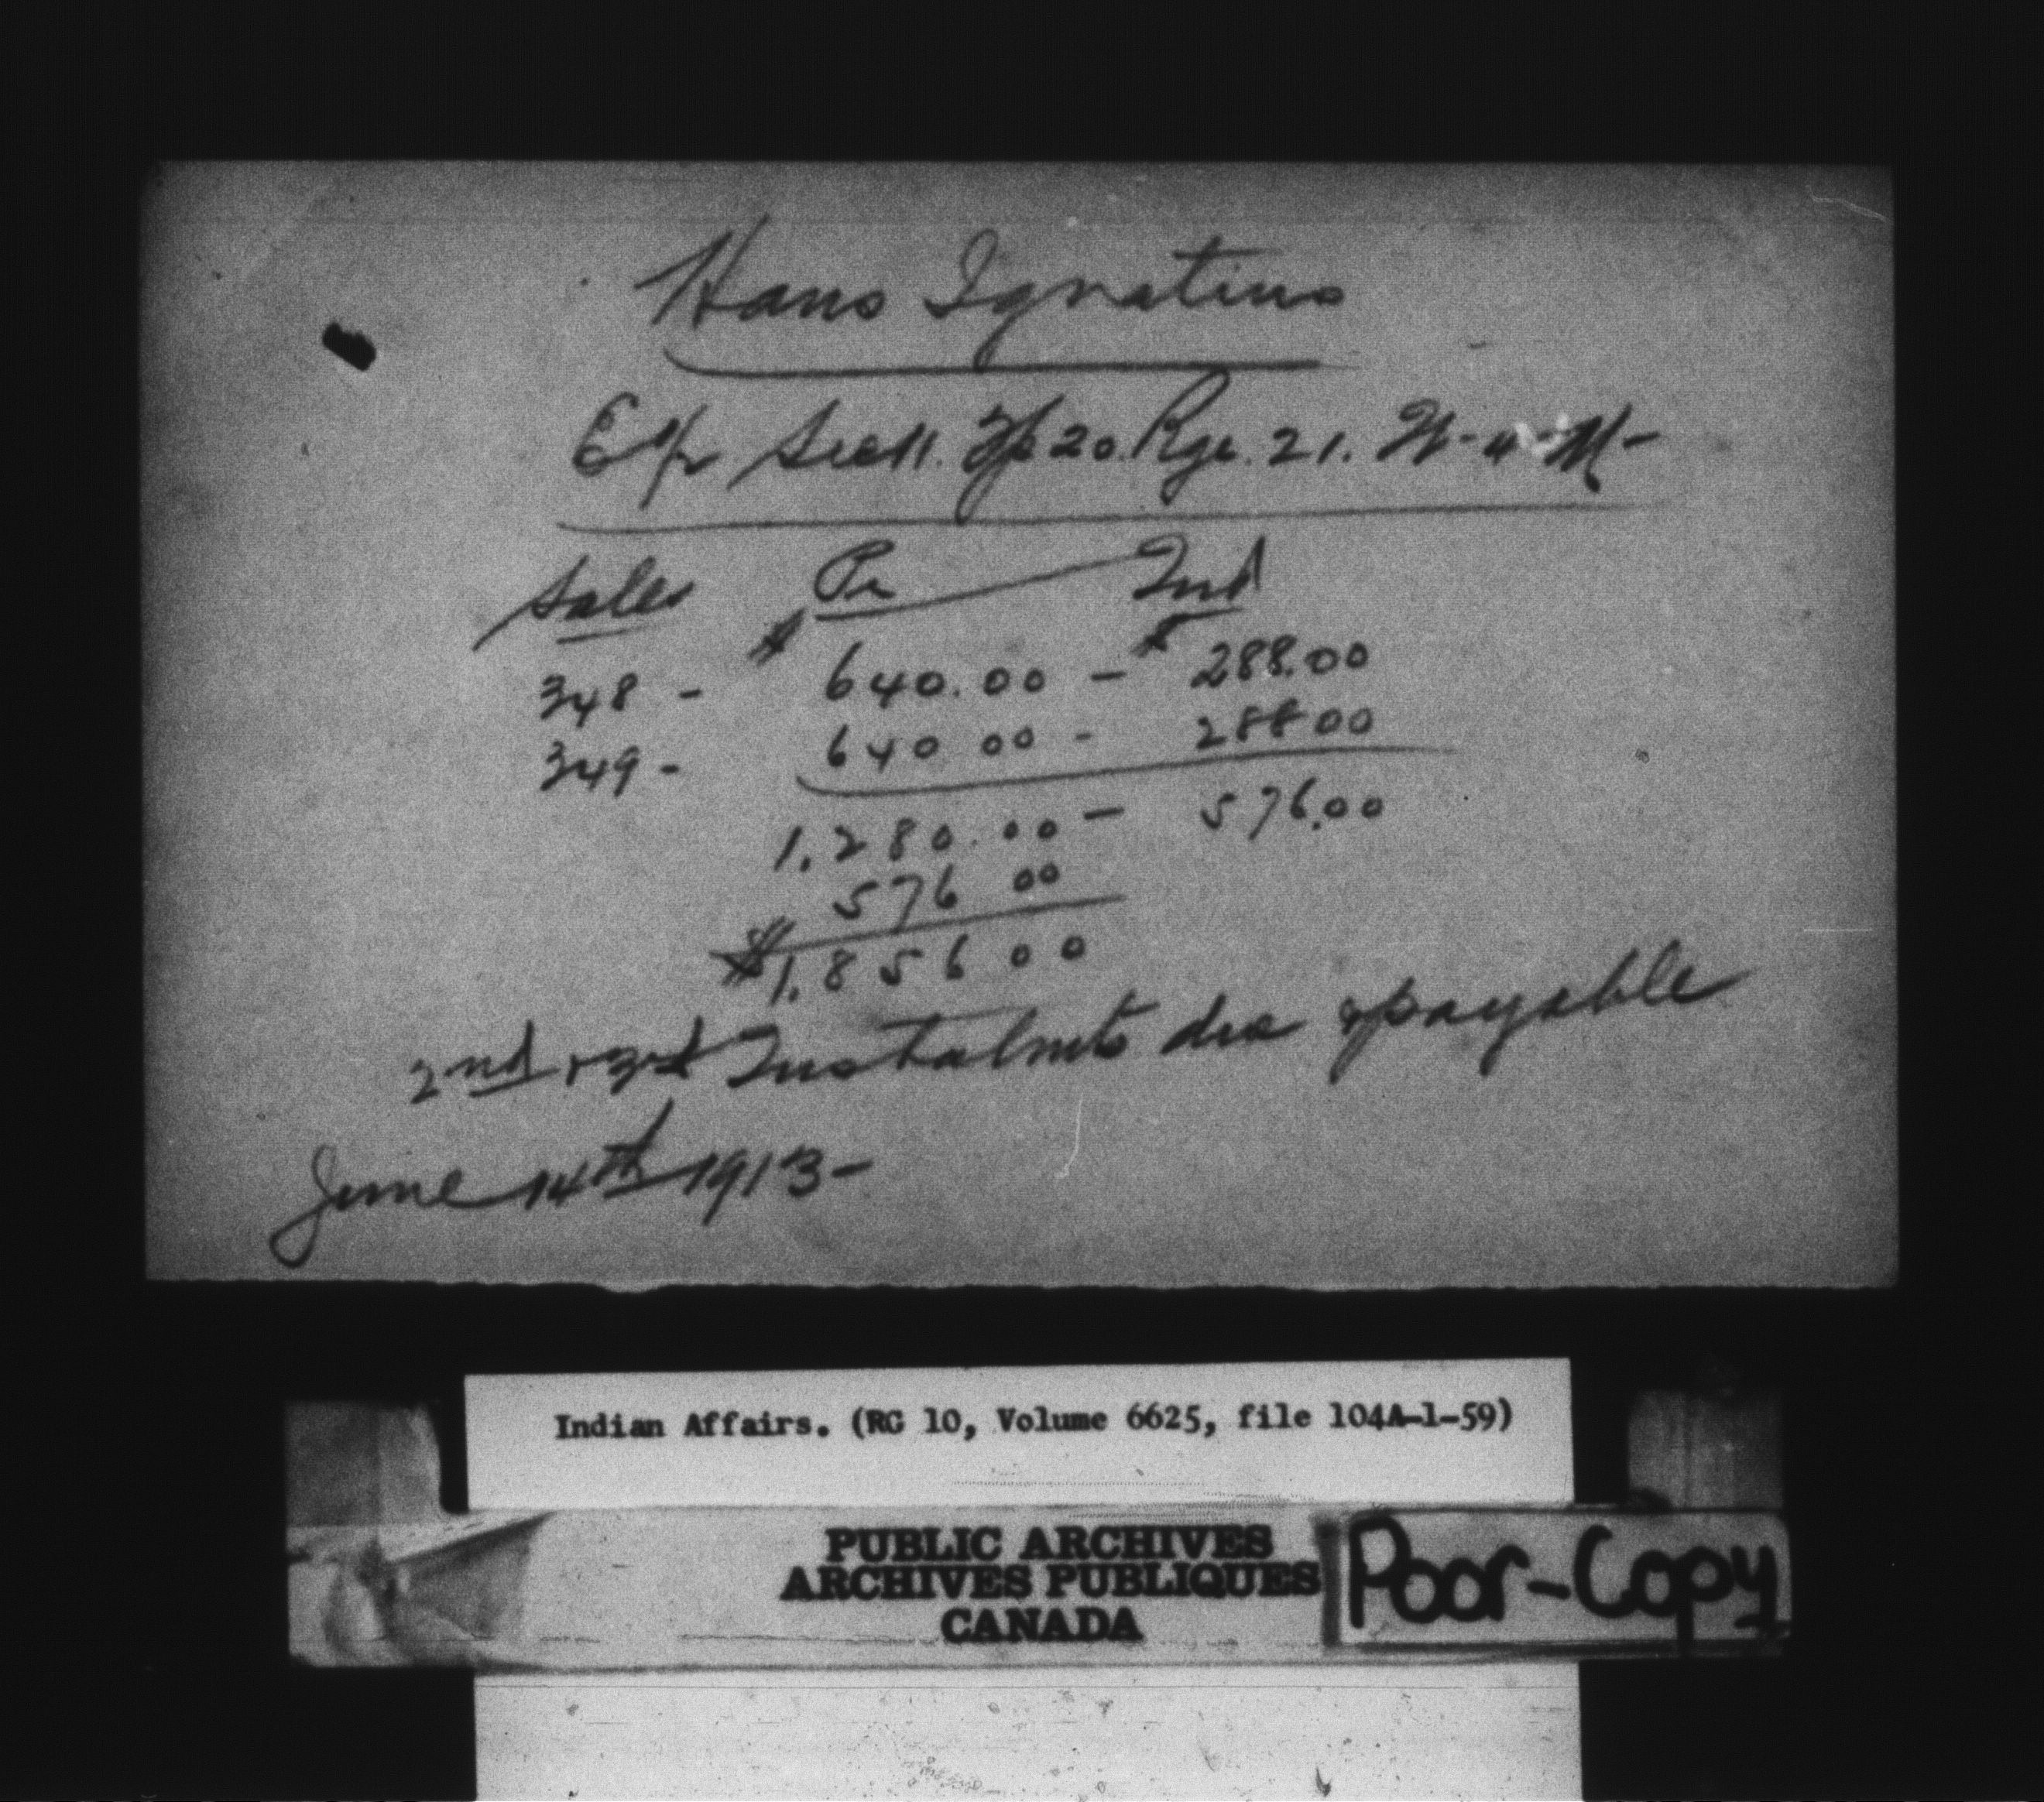 Hans Ignatius
E½ Sec 11. Tp 20. Rge. 21. W-4-M-
Sales Pr Int
348 - $ 640.00 - $ 288.00
349 - 640 00 - 288 00
1,280.00 - 576.00
576 00
$1,856 00
2nd & 3rd Instalmts due & payable
June 14th 1913-
Indian Affairs. (RG 10, Volume 6625, file 104A-1-59)
PUBLIC ARCHIVES
ARCHIVES PUBLIQUES
CANADA
Poor-Copy